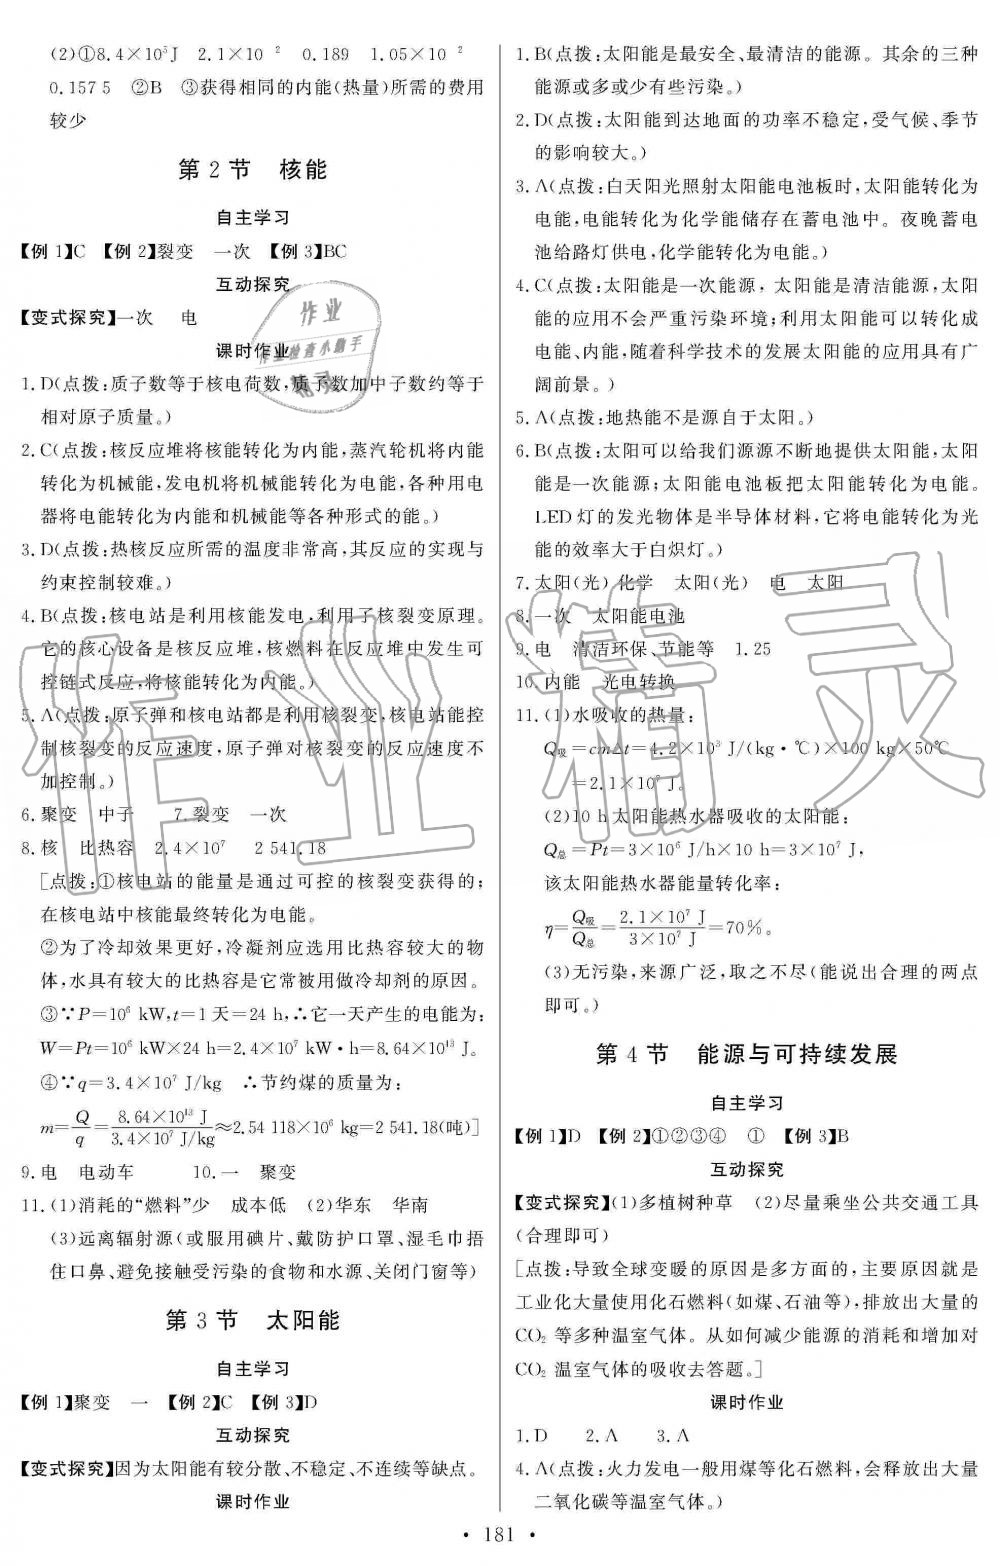 (2)①8.4×10⁵J 2.1×10 ² 0.189 1.05×10 ²
0.157 5 ②B ③获得相同的内能(热量)所需的费用
较少
第2节 核能
自主学习
【例1】C 【例2】裂变 一次 【例3】BC
互动探究
【变式探究】一次 电
课时作业
1. D(点拨:质子数等于核电荷数,质子数加中子数约等于
相对原子质量。)
2. C(点拨:核反应堆将核能转化为内能,蒸汽轮机将内能
转化为机械能,发电机将机械能转化为电能,各种用电
器将电能转化为内能和机械能等各种形式的能。)
3. D(点拨:热核反应所需的温度非常高,其反应的实现与
约束控制较难。)
4. B(点拨:核电站是利用核能发电,利用了核裂变原理。
它的核心设备是核反应堆,核燃料在反应堆中发生可
控链式反应,将核能转化为内能。)
5. A(点拨:原子弹和核电站都是利用核裂变,核电站能控
制核裂变的反应速度,原子弹对核裂变的反应速度不
加控制。)
6. 聚变 中子 7. 裂变 一次
8. 核 比热容 2.4×10⁷ 2 541.18
[点拨:①核电站的能量是通过可控的核裂变获得的;
在核电站中核能最终转化为电能。
②为了冷却效果更好,冷凝剂应选用比热容较大的物
体,水具有较大的比热容是它常被用做冷却剂的原因。
③∵P=10⁶ kW,t=1天=24 h,∴它一天产生的电能为:
W=Pt=10⁶ kW×24 h=2.4×10⁷ kW·h=8.64×10¹³ J。
④∵q=3.4×10⁷ J/kg ∴节约煤的质量为:
m=Q/q=8.64×10¹³ J/3.4×10⁷ J/kg≈2.54 118×10⁶ kg=2 541.18(吨)]
9. 电 电动车 10. 一 聚变
11. (1)消耗的“燃料”少 成本低 (2)华东 华南
(3)远离辐射源(或服用碘片、戴防护口罩、湿毛巾捂
住口鼻、避免接触受污染的食物和水源、关闭门窗等)
第3节 太阳能
自主学习
【例1】聚变 一 【例2】C 【例3】D
互动探究
【变式探究】因为太阳能有较分散、不稳定、不连续等缺点。
课时作业
1. B(点拨:太阳能是最安全、最清洁的能源。其余的三种
能源或多或少有些污染。)
2. D(点拨:太阳能到达地面的功率不稳定,受气候、季节
的影响较大。)
3. A(点拨:白天阳光照射太阳能电池板时,太阳能转化为
电能,电能转化为化学能储存在蓄电池中。夜晚蓄电
池给路灯供电,化学能转化为电能。)
4. C(点拨:太阳能是一次能源,太阳能是清洁能源,太阳
能的应用不会严重污染环境;利用太阳能可以转化成
电能、内能,随着科学技术的发展太阳能的应用具有广
阔前景。)
5. A(点拨:地热能不是源自于太阳。)
6. B(点拨:太阳可以给我们源源不断地提供太阳能,太阳
能是一次能源;太阳能电池板把太阳能转化为电能。
LED灯的发光物体是半导体材料,它将电能转化为光
能的效率大于白炽灯。)
7. 太阳(光) 化学 太阳(光) 电 太阳
8. 一次 太阳能电池
9. 电 清洁环保、节能等 1.25
10. 内能 光电转换
11. (1)水吸收的热量:
Q吸=cmΔt=4.2×10³ J/(kg·℃)×100 kg×50℃
=2.1×10⁷ J。
(2)10 h太阳能热水器吸收的太阳能:
Q总=Pt=3×10⁶ J/h×10 h=3×10⁷ J,
该太阳能热水器能量转化率:
η=Q吸/Q总=2.1×10⁷ J/3×10⁷ J=70%。
(3)无污染,来源广泛,取之不尽(能说出合理的两点
即可。)
第4节 能源与可持续发展
自主学习
【例1】D 【例2】①②③④ ① 【例3】B
互动探究
【变式探究】(1)多植树种草 (2)尽量乘坐公共交通工具
(合理即可)
[点拨:导致全球变暖的原因是多方面的,主要原因就是
工业化大量使用化石燃料(如煤、石油等),排放出大量的
CO₂等多种温室气体。从如何减少能源的消耗和增加对
CO₂温室气体的吸收去答题。]
课时作业
1. D 2. A 3. A
4. A(点拨:火力发电一般用煤等化石燃料,会释放出大量
二氧化碳等温室气体。)
· 181 ·
作业
作业检查小助手
精灵
作业精灵